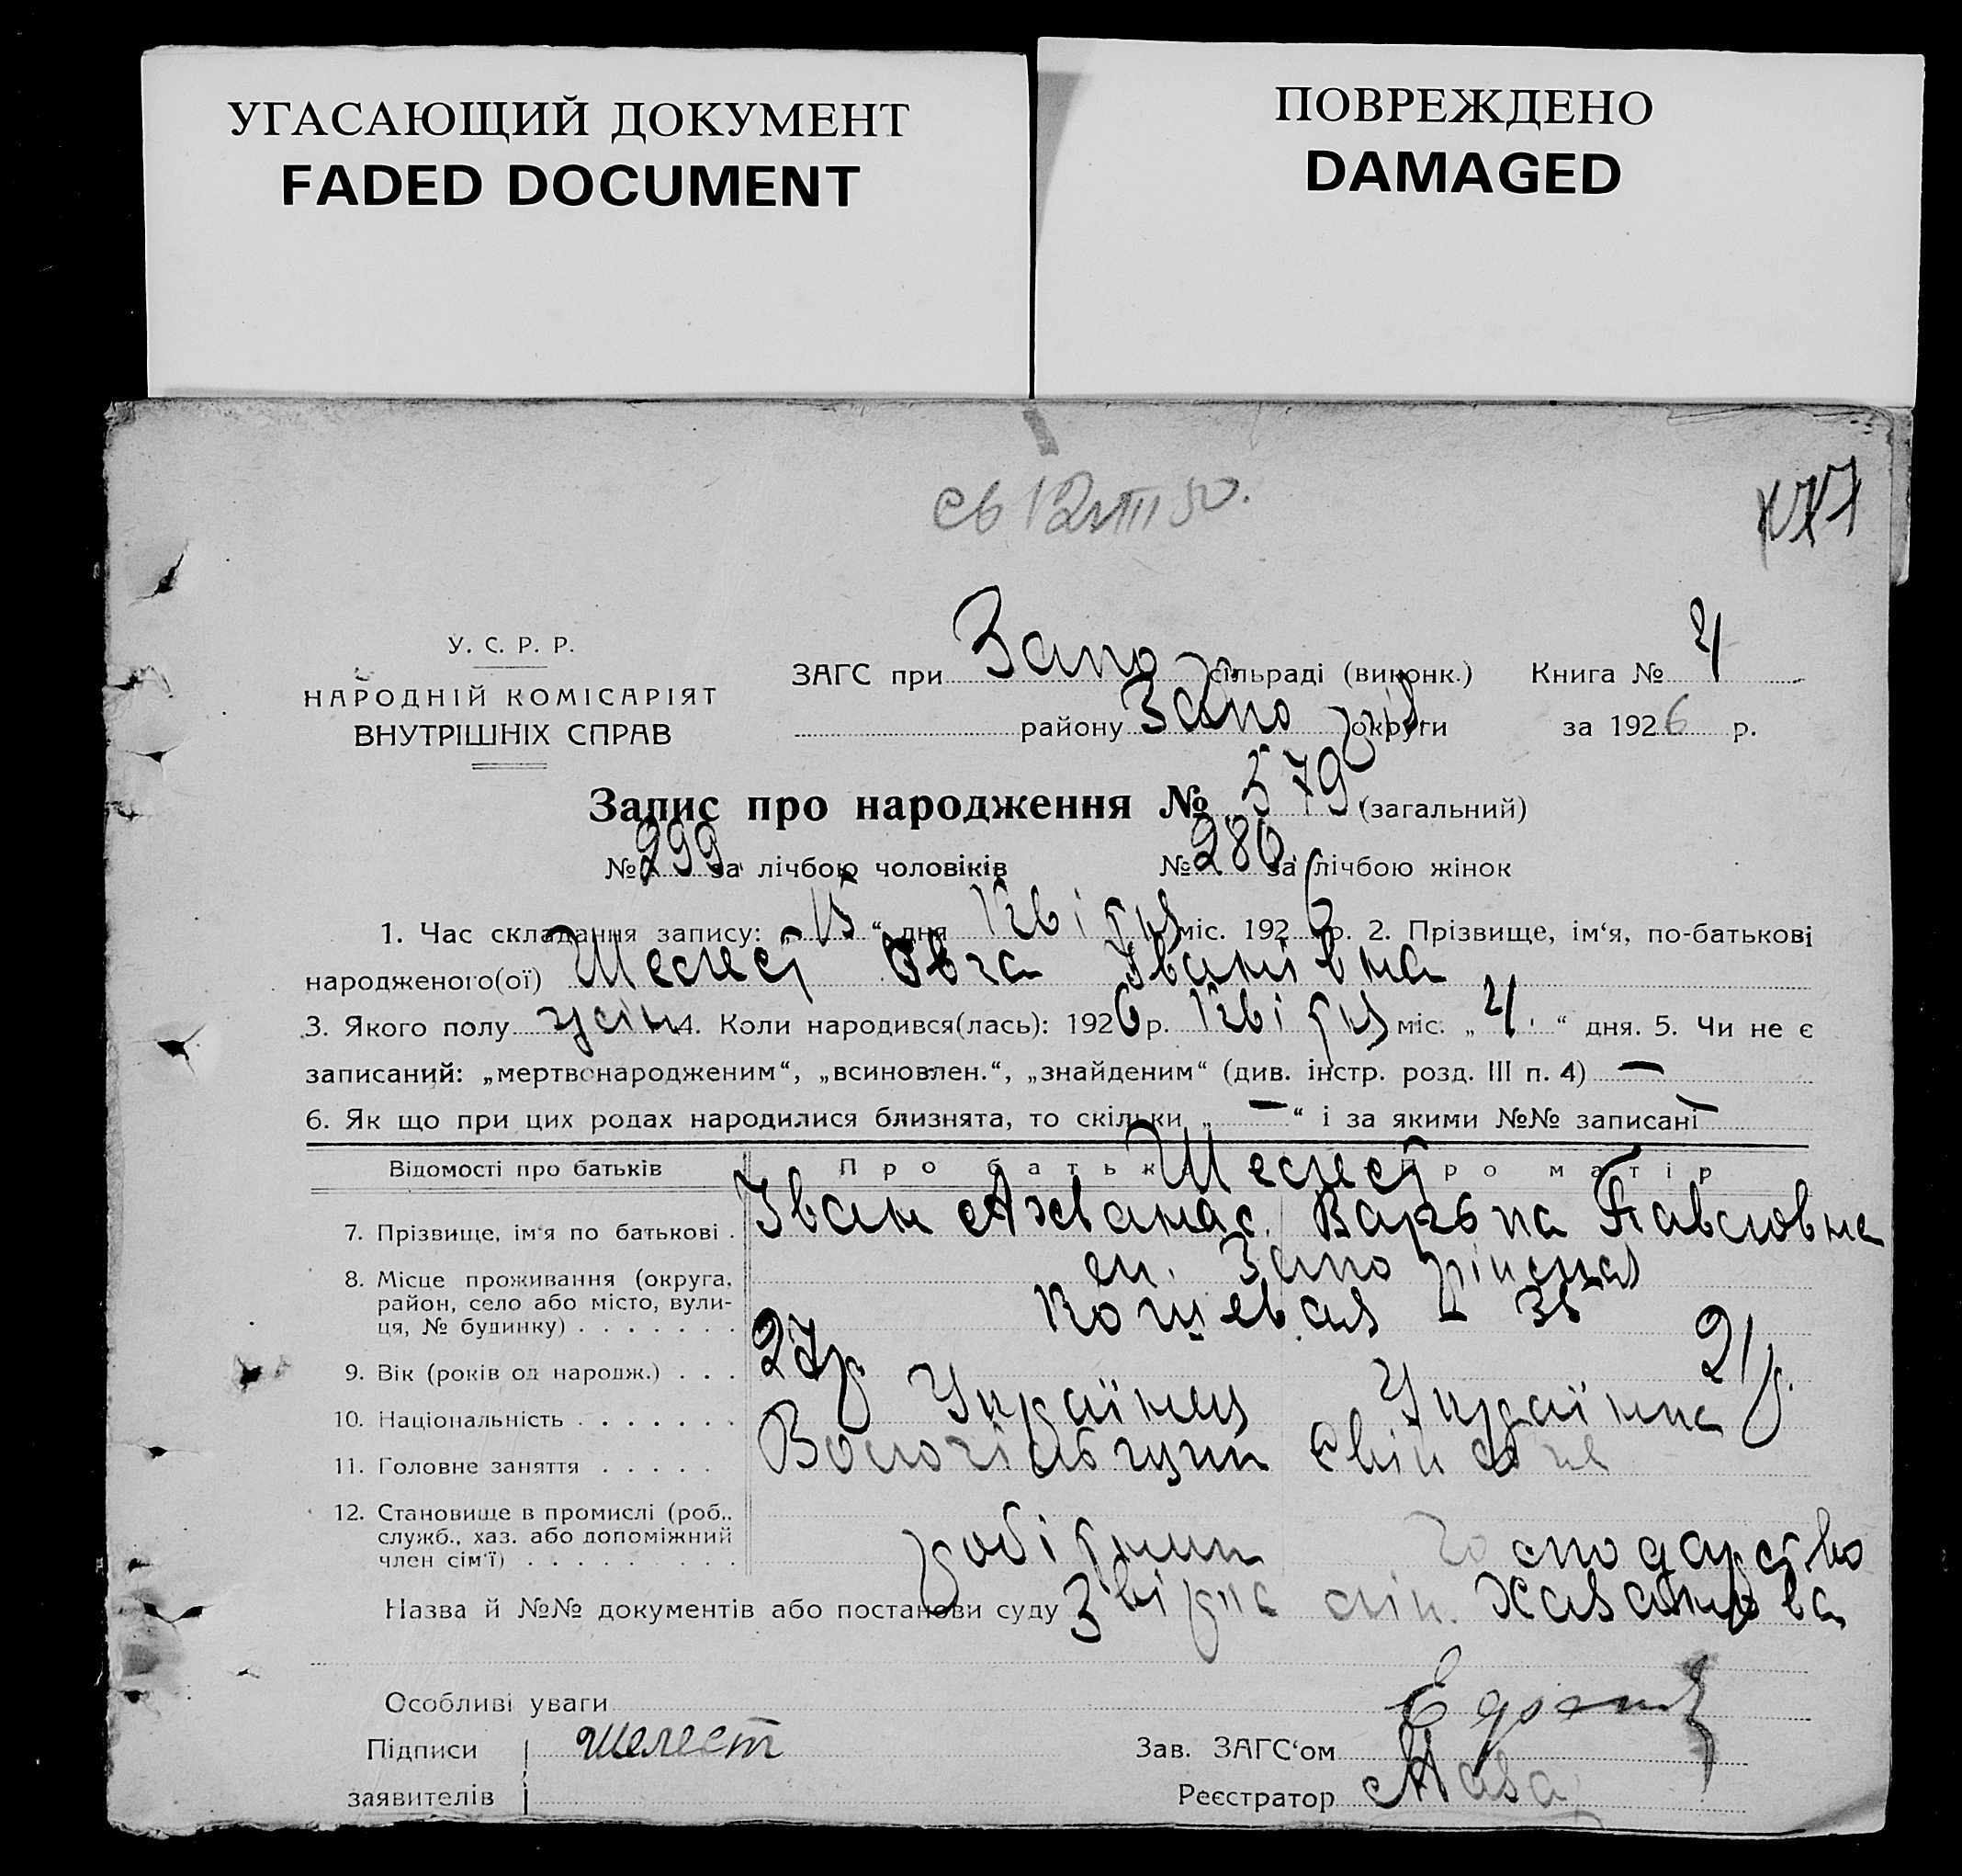 УГАСАЮЩИЙ ДОКУМЕНТ
FADED DOCUMENT
ПОВРЕЖДЕНО
DAMAGED
св 12 VIII 50.
У. С. Р. Р.
НАРОДНІЙ КОМІСАРІЯТ
ВНУТРІШНІХ СПРАВ
ЗАГС при Запо сільраді (виконк.) Книга № 4
району Запо округи за 1926 р.
Запис про народження № 579 (загальний)
№ 299 за лічбою чоловіків № 280 за лічбою жінок
1. Час складання запису: „15“ дня Квітня міс. 1926 р. 2. Прізвище, ім‘я, по-батькові
народженого(ої) Шелест Ольга Іванівна
3. Якого полу жін 4. Коли народився(лась): 1926 р. Квітня міс. „4“ дня. 5. Чи не є
записаний: „мертвонародженим“, „всиновлен.“, „знайденим“ (див. інстр. розд. III п. 4) —
6. Як що при цих родах народилися близнята, то скільки „—“ і за якими №№ записані —
Відомості про батьків Про батька Шелест Про матір
7. Прізвище, ім‘я по батькові . Іван Афанас. Павловна
8. Місце проживання (округа,
район, село або місто, вули-
ця, № будинку) . . . . . . . Кошевая – 36
9. Вік (років од народж.) . . . 27р. 21р.
10. Національність . . . . . . . Українец Українка
11. Головне заняття . . . . .
12. Становище в промислі (роб.,
служб., хаз. або допоміжний
член сім‘ї) . . . . . . . . . робітник господарство
Назва й №№ документів або постанови суду
Особливі уваги
Підписи шелест Зав. ЗАГС‘ом
заявителів Реєстратор